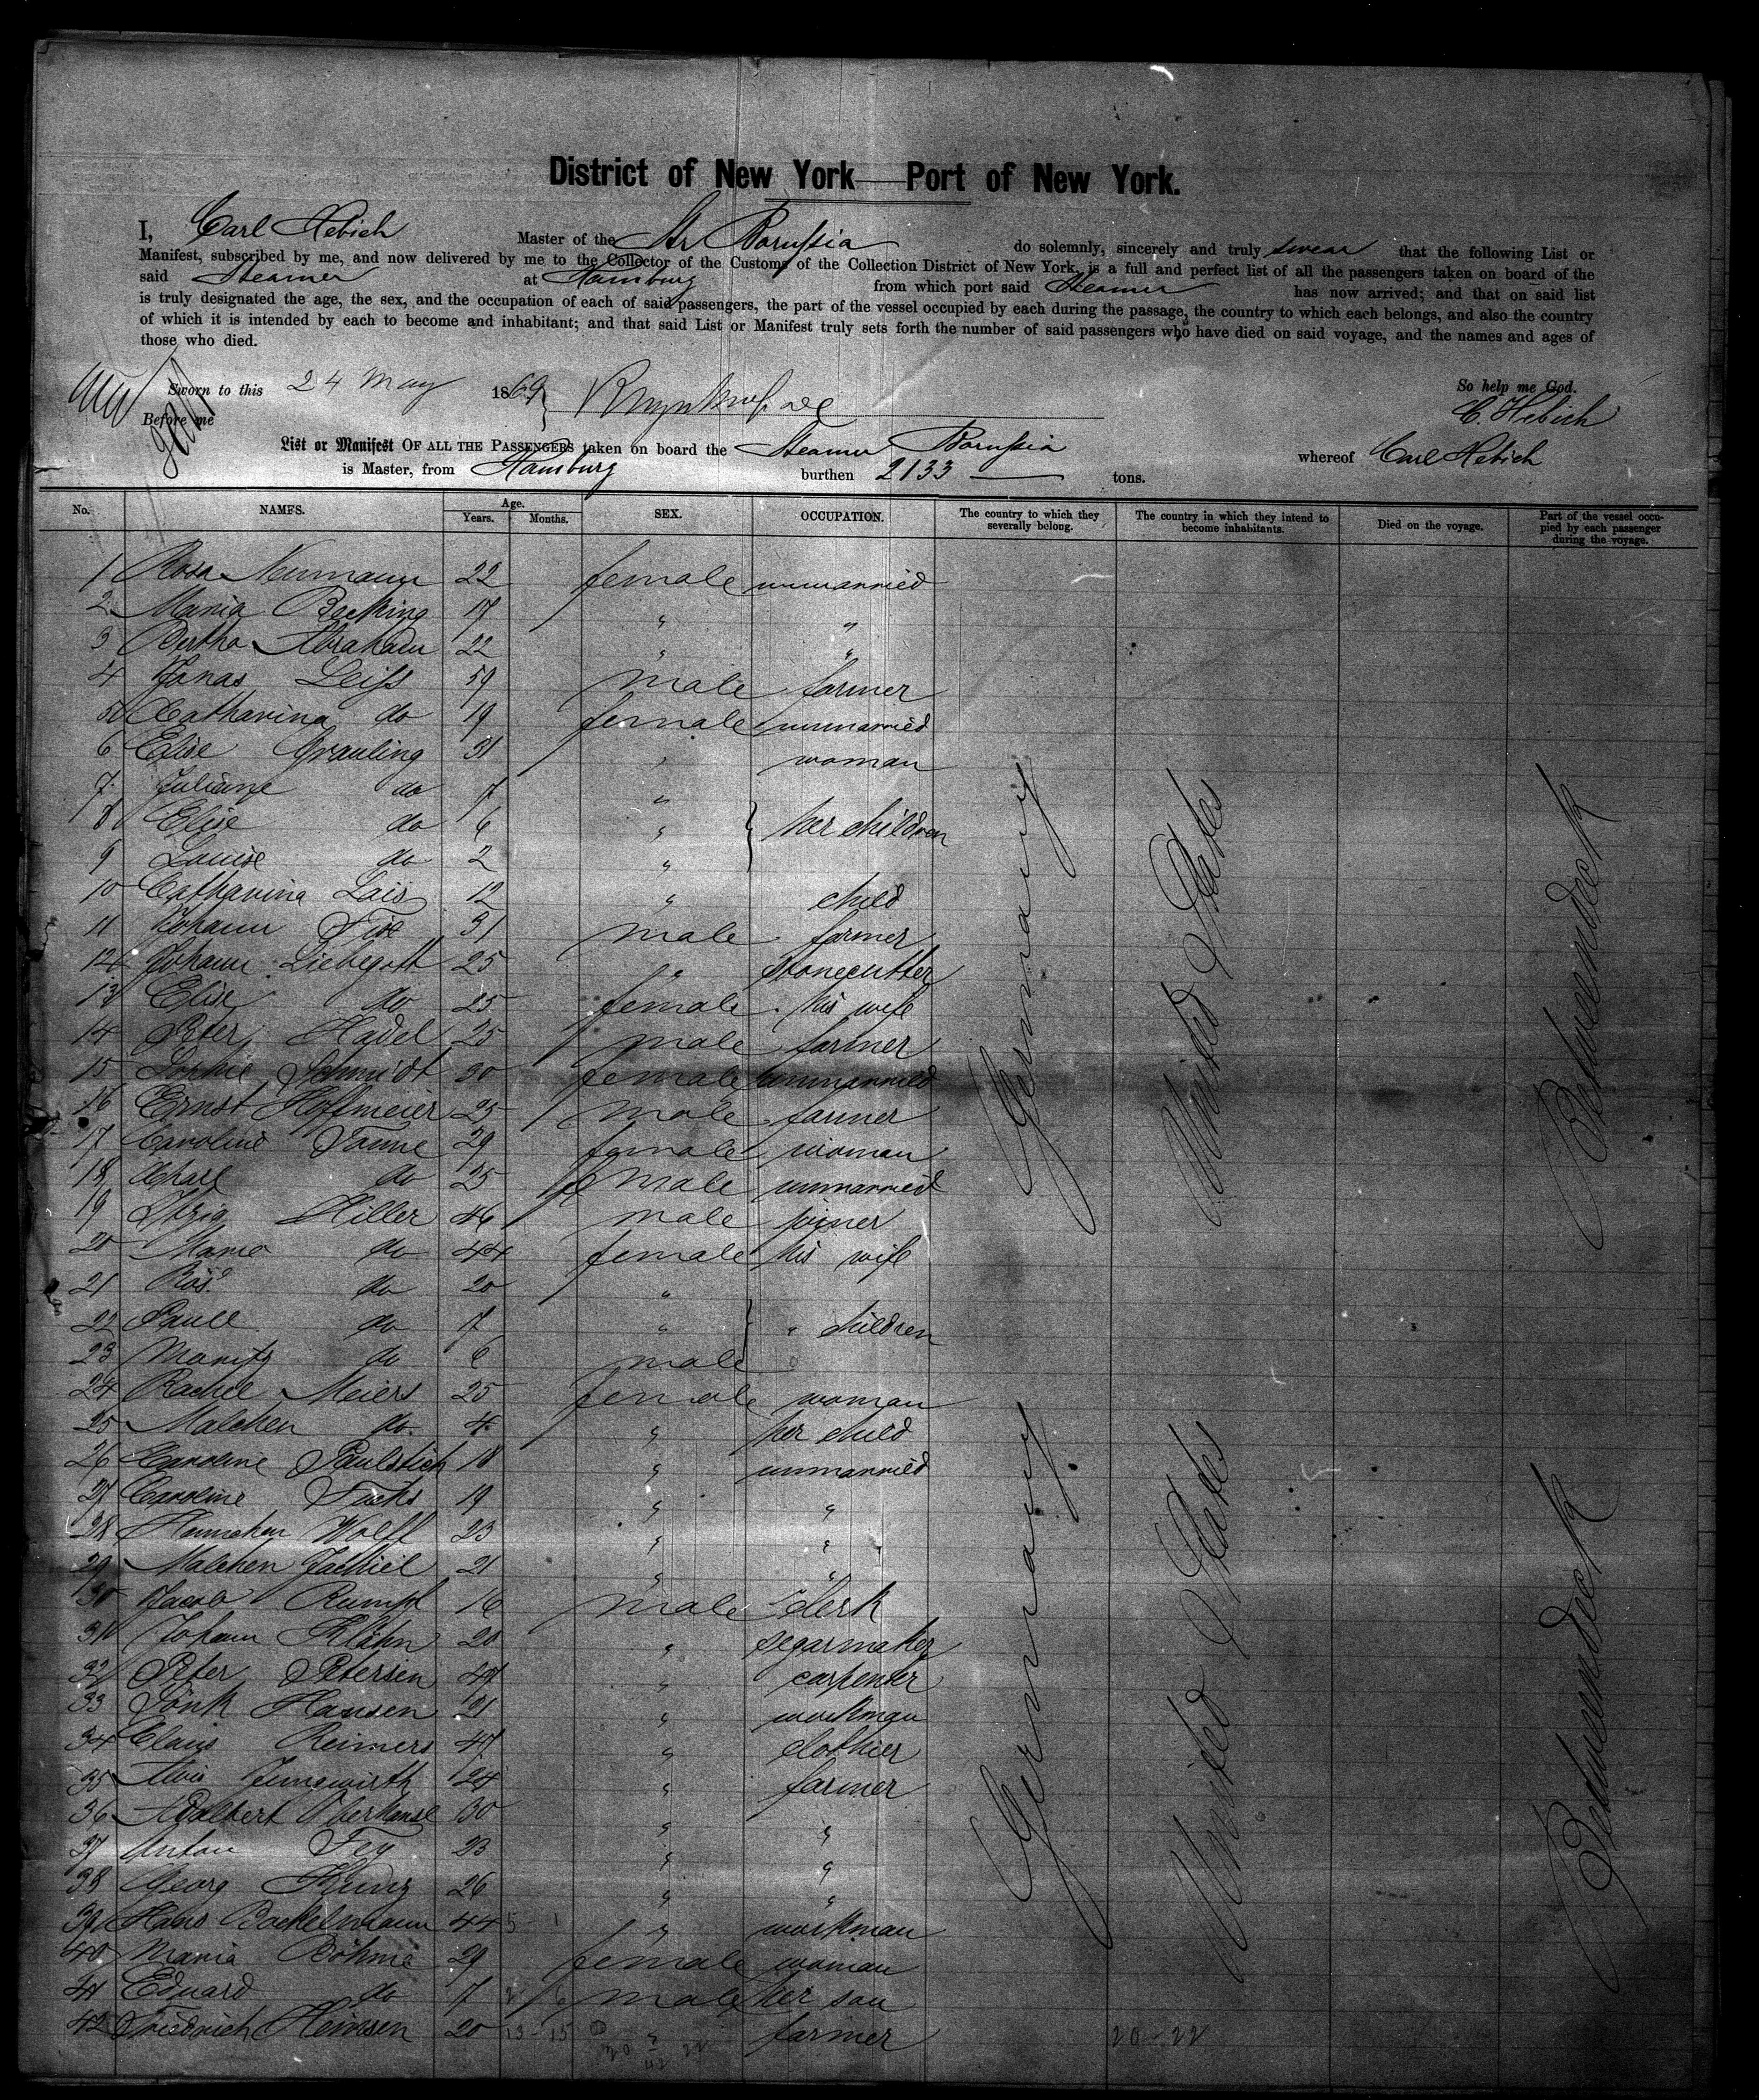 District of New York—Port of New York.
I, Carl Hebich Master of the Str Borussia do solemnly, sincerely and truly swear that the following List or
Manifest, subscribed by me, and now delivered by me to the Collector of the Customs of the Collection District of New York, is a full and perfect list of all the passengers taken on board of the
said Steamer at Hamburg from which port said Steamer has now arrived; and that on said list
is truly designated the age, the sex, and the occupation of each of said passengers, the part of the vessel occupied by each during the passage, the country to which each belongs, and also the country
of which it is intended by each to become and inhabitant; and that said List or Manifest truly sets forth the number of said passengers who have died on said voyage, and the names and ages of
those who died.
Sworn to this 24 May 1869 So help me God.
Before me C. Hebich
List or Manifest OF ALL THE PASSENGERS taken on board the Steamer Borussia whereof Carl Hebich
is Master, from Hamburg burthen 2133 tons.
No. NAMES. Age. Years. Months. SEX. OCCUPATION. The country to which they severally belong. The country in which they intend to become inhabitants. Died on the voyage. Part of the vessel occupied by each passenger during the voyage.
1 Rosa Neumann 22 female unmarried
2 Maria Backing 17 " "
3 Bertha Abraham 22 " "
4 Jonas Leiss 59 male farmer
5 Catharina do 19 female unmarried
6 Elise Grauling 31 " woman
7 Juliane do 7 "
8 Elise do 6 " her children
9 Louise do 2 "
10 Catharina Lais 12 " child
11 Johann 31 male farmer
12 Johann Liebegott 25 " stonecutter
13 Elise do 25 female his wife
14 Peter Hadel 25 male farmer
15 Sophie Schmidt 30 female unmarried
16 Ernst Hoffmeier 25 male farmer
17 Caroline 29 female woman
18 do 25 female unmarried
19 Hiller 46 male joiner
20 do 44 female his wife
21 Rosa do 20 "
22 do 7 " " children
23 Moritz do 6 male
24 Rachel Meiers 25 female woman
25 Malchen do. 4 " her child
26 Caroline Paulstich 18 " unmarried
27 Caroline Fuchs 19 " "
28 Hannchen Wolff 23 " "
29 Malchen Jachiel 21 " "
30 Jacob Rumpf 16 male clerk
31 Johann Klähn 20 " segarmaker
32 Peter Petersen 49 " carpenter
33 Hansen 21 " workman
34 Claus Reimers 47 " clothier
35 Alois Jungwirth 24 " farmer
36 Adalbert 30 " "
37 Anton Fey 23 " "
38 Georg Kunz 26 " "
39 Hans Backelmann 44 " workman
40 Maria Böhme 29 female woman
41 Eduard do 7 male her son
42 Friedrich Heinsen 20 " farmer
20-22
Germany
United States
Betweendeck
Germany
United States
Betweendeck